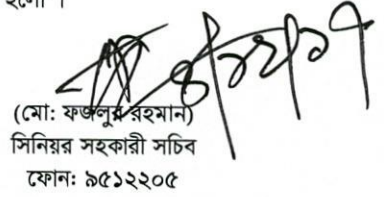 হলো।
(মো: ফজলুর রহমান)
সিনিয়র সহকারী সচিব
ফোন: ৯৫১২২০৫